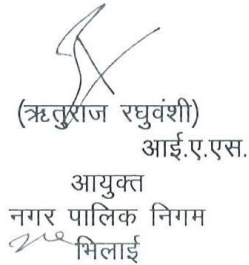 (ऋतुराज रघुवंशी)
आई.ए.एस.
आयुक्त
नगर पालिक निगम
भिलाई